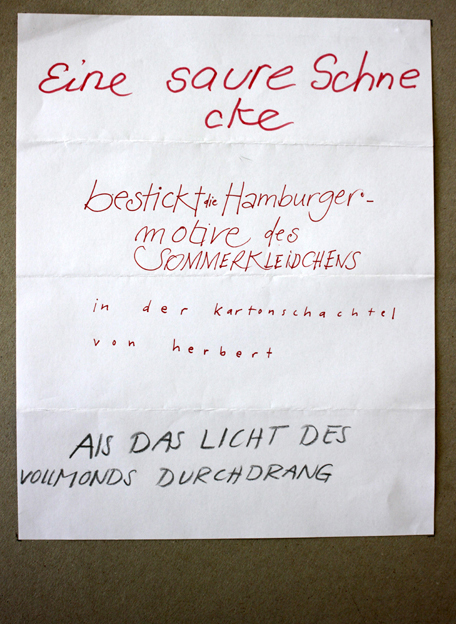 Eine saure Schne
cke
bestickt die Hamburger-
motive des
SOMMERKLEIDCHENS
in der kartonschachtel
von herbert
AlS DAS LICHT DES
VOLLMONDS DURCHDRANG